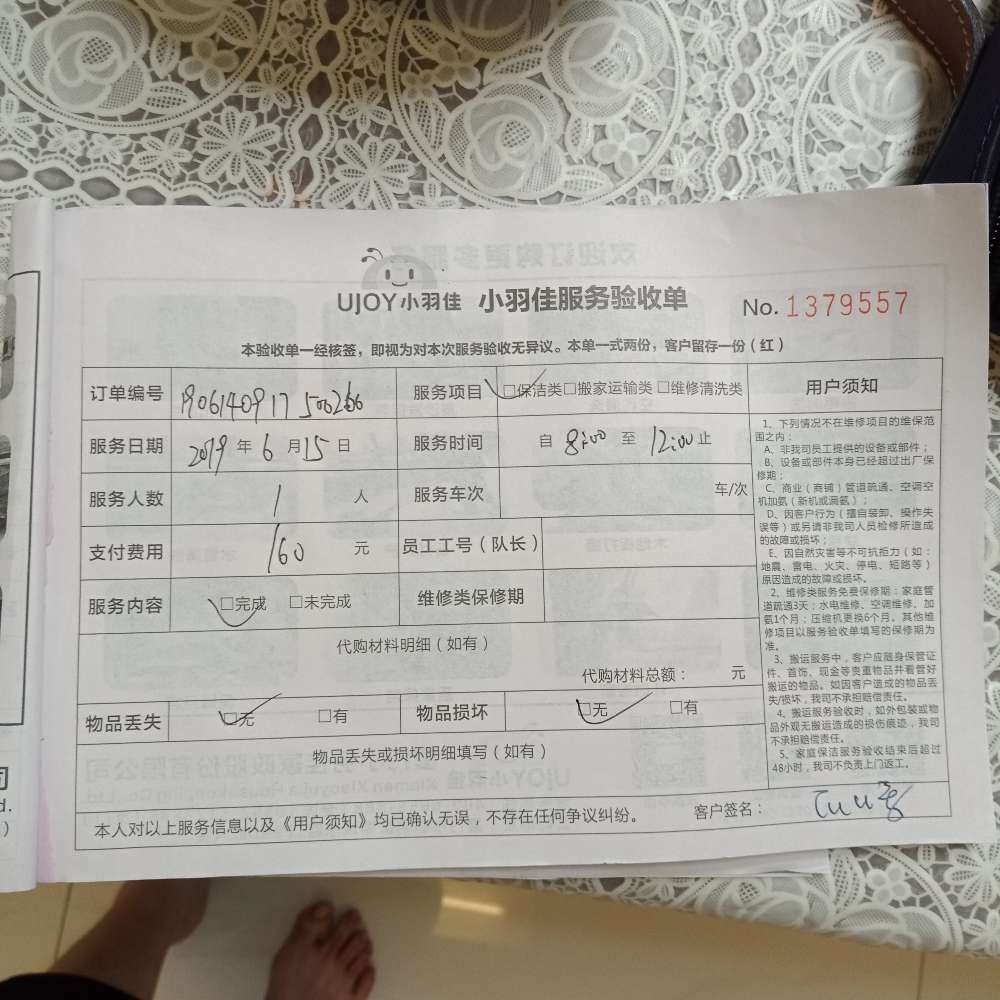 UJOY小羽佳 小羽佳服务验收单 No. 1379557
本验收单一经核签，即视为对本次服务验收无异议。本单一式两份，客户留存一份（红）
订单编号 190614091750026 服务项目 □保洁类□搬家运输类 □维修清洗类
服务日期 2019 年 6 月 15 日 服务时间 自 8:00 至 12:00 止
服务人数 1 人 服务车次 车/次
支付费用 160 元 员工工号（队长）
服务内容 □完成 □未完成 维修类保修期
代购材料明细（如有）
代购材料总额： 元
物品丢失 □无 □有 物品损坏 □无 □有
物品丢失或损坏明细填写（如有）
本人对以上服务信息以及《用户须知》均已确认无误，不存在任何争议纠纷。 客户签名：
用户须知
1、下列情况不在维修项目的维保范
围之内：
A、非我司员工提供的设备或部件；
B、设备或部件本身已经超过出厂保
修期；
C、商业（商铺）管道疏通、空调空
机加氨（新机或漏氨）；
D、因客户行为（擅自装卸、操作失
误等）或另请非我司人员检修所造成
的故障或损坏；
E、因自然灾害等不可抗拒力（如：
地震、雷电、火灾、停电、短路等）
原因造成的故障或损坏。
2、维修类服务免费保修期：家庭管
道疏通3天；水电维修、空调维修、加
氨1个月；压缩机更换6个月。其他维
修项目以服务验收单填写的保修期为
准。
3、搬运服务中，客户应随身保管证
件、首饰、现金等贵重物品并看管好
搬运的物品。如因客户造成的物品丢
失/损坏，我司不承担赔偿责任。
4、搬运服务验收时，如外包装或物
品外观无搬运造成的损伤痕迹，我司
不承担赔偿责任。
5、家庭保洁服务验收结束后超过
48小时，我司不负责上门返工。
司
d.
)